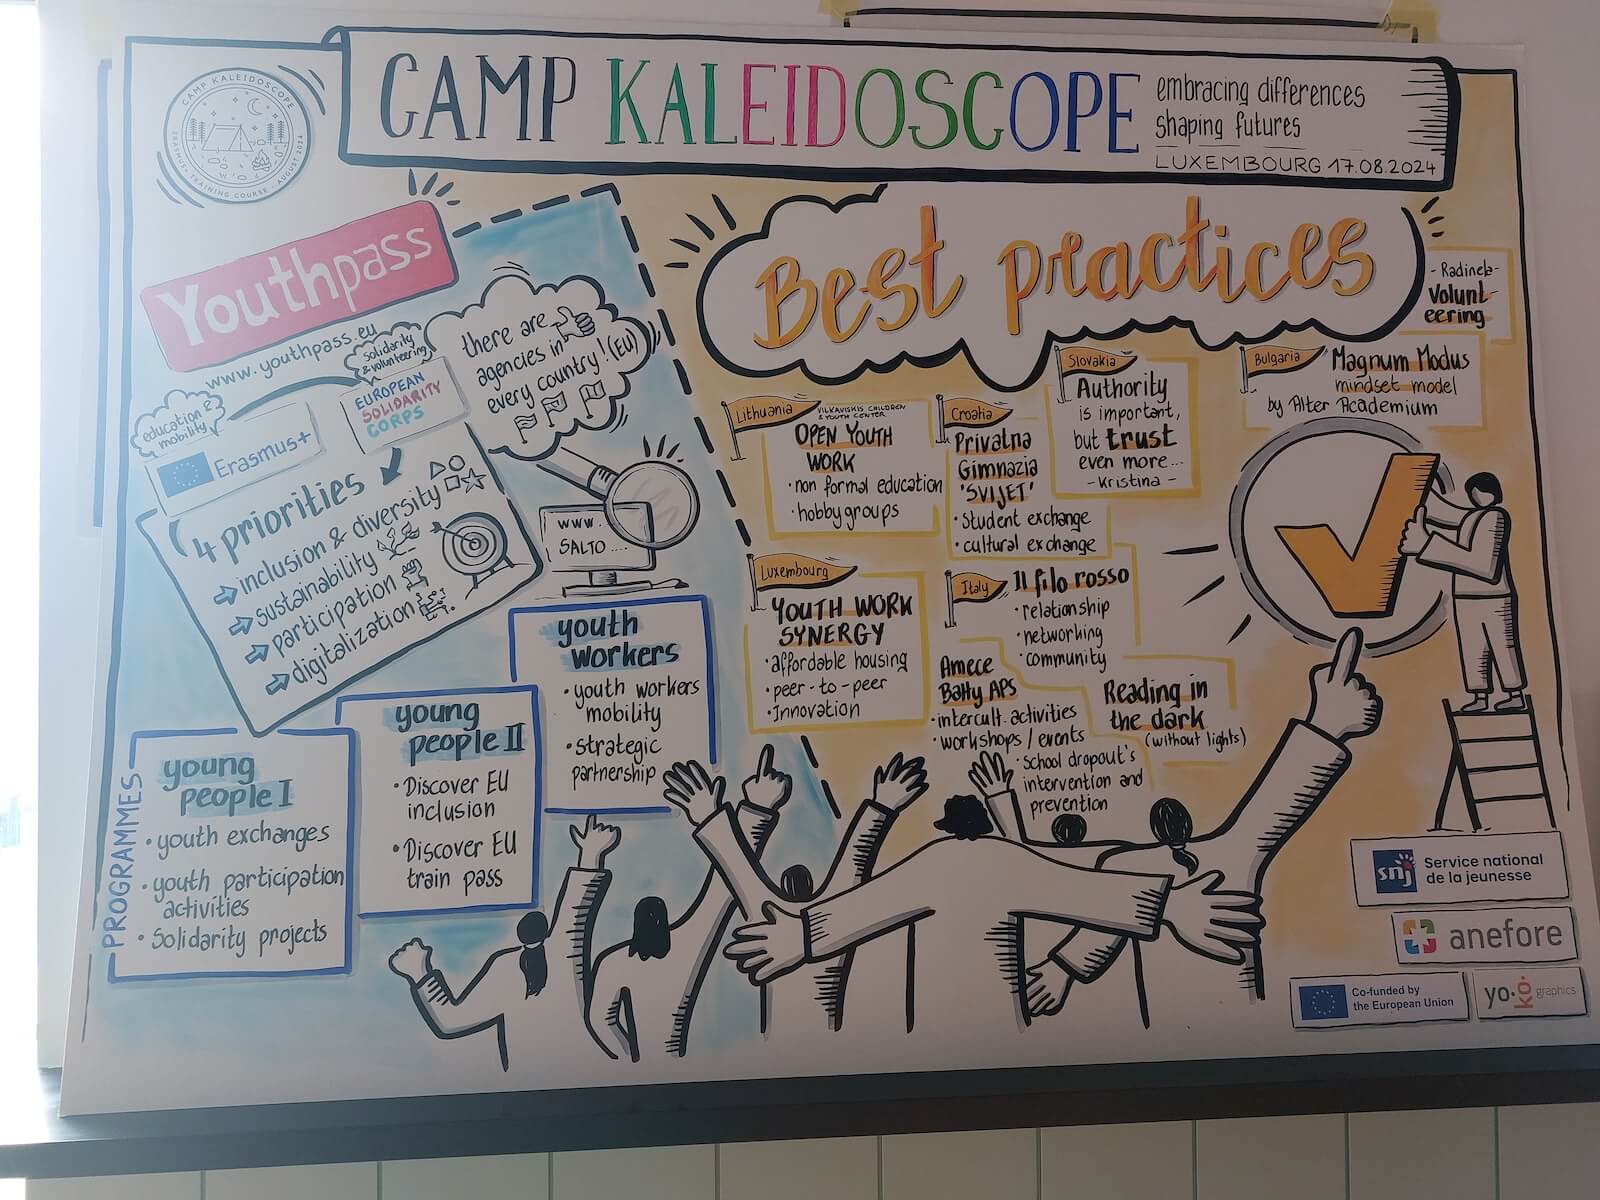 CAMP KALEIDOSCOPE
ERASMUS+ TRAINING COURSE - AUGUST 2024
CAMP KALEIDOSCOPE
embracing differences
shaping futures
LUXEMBOURG 17.08.2024
Youthpass
www.youthpass.eu
education &
mobility
Erasmus+
solidarity
& volunteering
EUROPEAN
SOLIDARITY
CORPS
there are
agencies in
every country! (EU)
4 priorities
inclusion & diversity
sustainability
participation
digitalization
WWW.
SALTO....
PROGRAMMES
young
people I
• youth exchanges
• youth participation
activities
• Solidarity projects
young
people II
• Discover EU
inclusion
• Discover EU
train pass
youth
workers
• youth workers
mobility
• strategic
partnership
Best practices
Lithuania
VILKAVISKIS CHILDREN
& YOUTH CENTER
OPEN YOUTH
WORK
• non formal education
• hobby groups
Croatia
Privatna
Gimnazia
'SVIJET'
• Student exchange
• cultural exchange
Slovakia
Authority
is important,
but trust
even more...
- Kristina -
Bulgaria
Magnum Modus
mindset model
by Alter Academium
- Radinela-
Volunt-
eering
Luxembourg
YOUTH WORK
SYNERGY
• affordable housing
• peer-to-peer
• Innovation
Italy
Il filo rosso
• relationship
• networking
• community
Amece
Batty APS
• intercult. activities
• workshops / events
• School dropout's
intervention and
prevention
Reading in
the dark
(without lights)
snj
Service national
de la jeunesse
anefore
Co-funded by
the European Union
yo.kó.
graphics